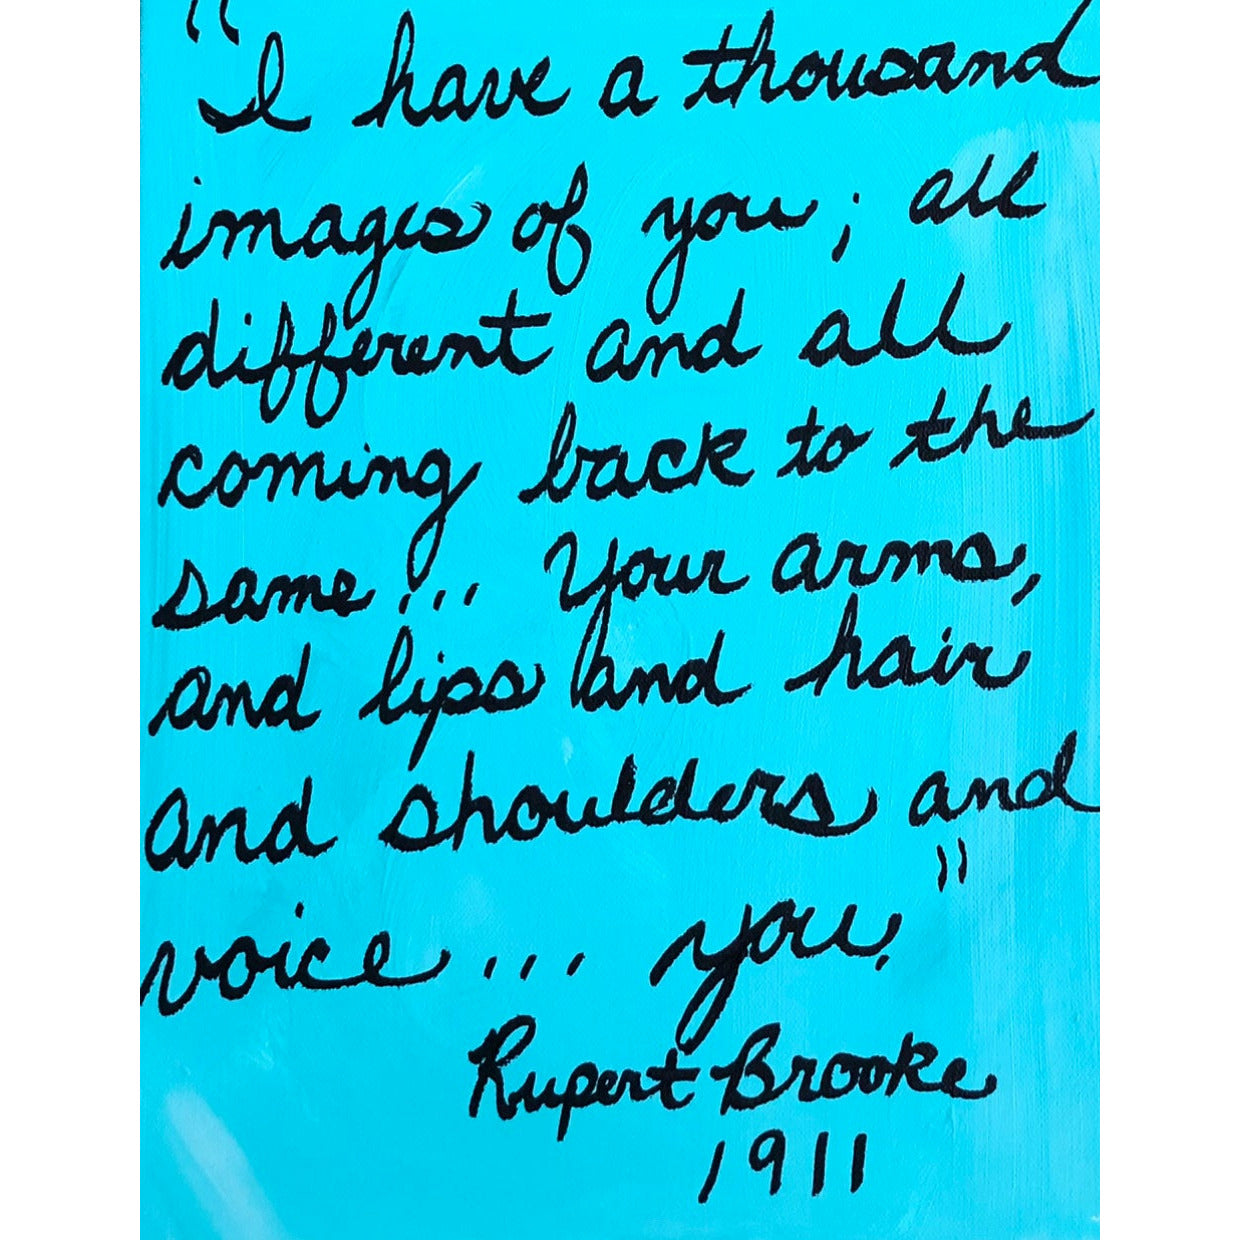 "I have a thousand
images of you; all
different and all
coming back to the
same... Your arms,
and lips and hair
and shoulders and
voice... you."
Rupert Brooke
1911